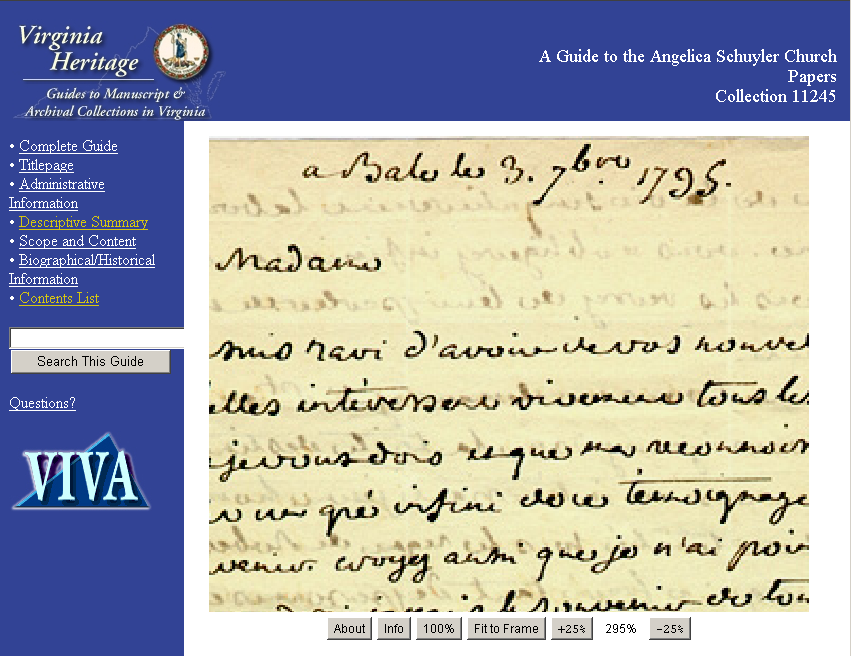 Virginia
Heritage
Guides to Manuscript &
Archival Collections in Virginia
A Guide to the Angelica Schuyler Church
Papers
Collection 11245
• Complete Guide
• Titlepage
• Administrative
Information
• Descriptive Summary
• Scope and Content
• Biographical/Historical
Information
• Contents List
Search This Guide
Questions?
VIVA
a Bale le 3. 7bre 1795.
Madame
suis ravi d'avoir de vos nouvel
elles intéressent vivement tous les
je vous dois et que ma reconnois
un gré infini de ce temoignage
venir croyez aussi que je n'ai poin
le souvenir de tou
About Info 100% Fit to Frame +25% 295% -25%